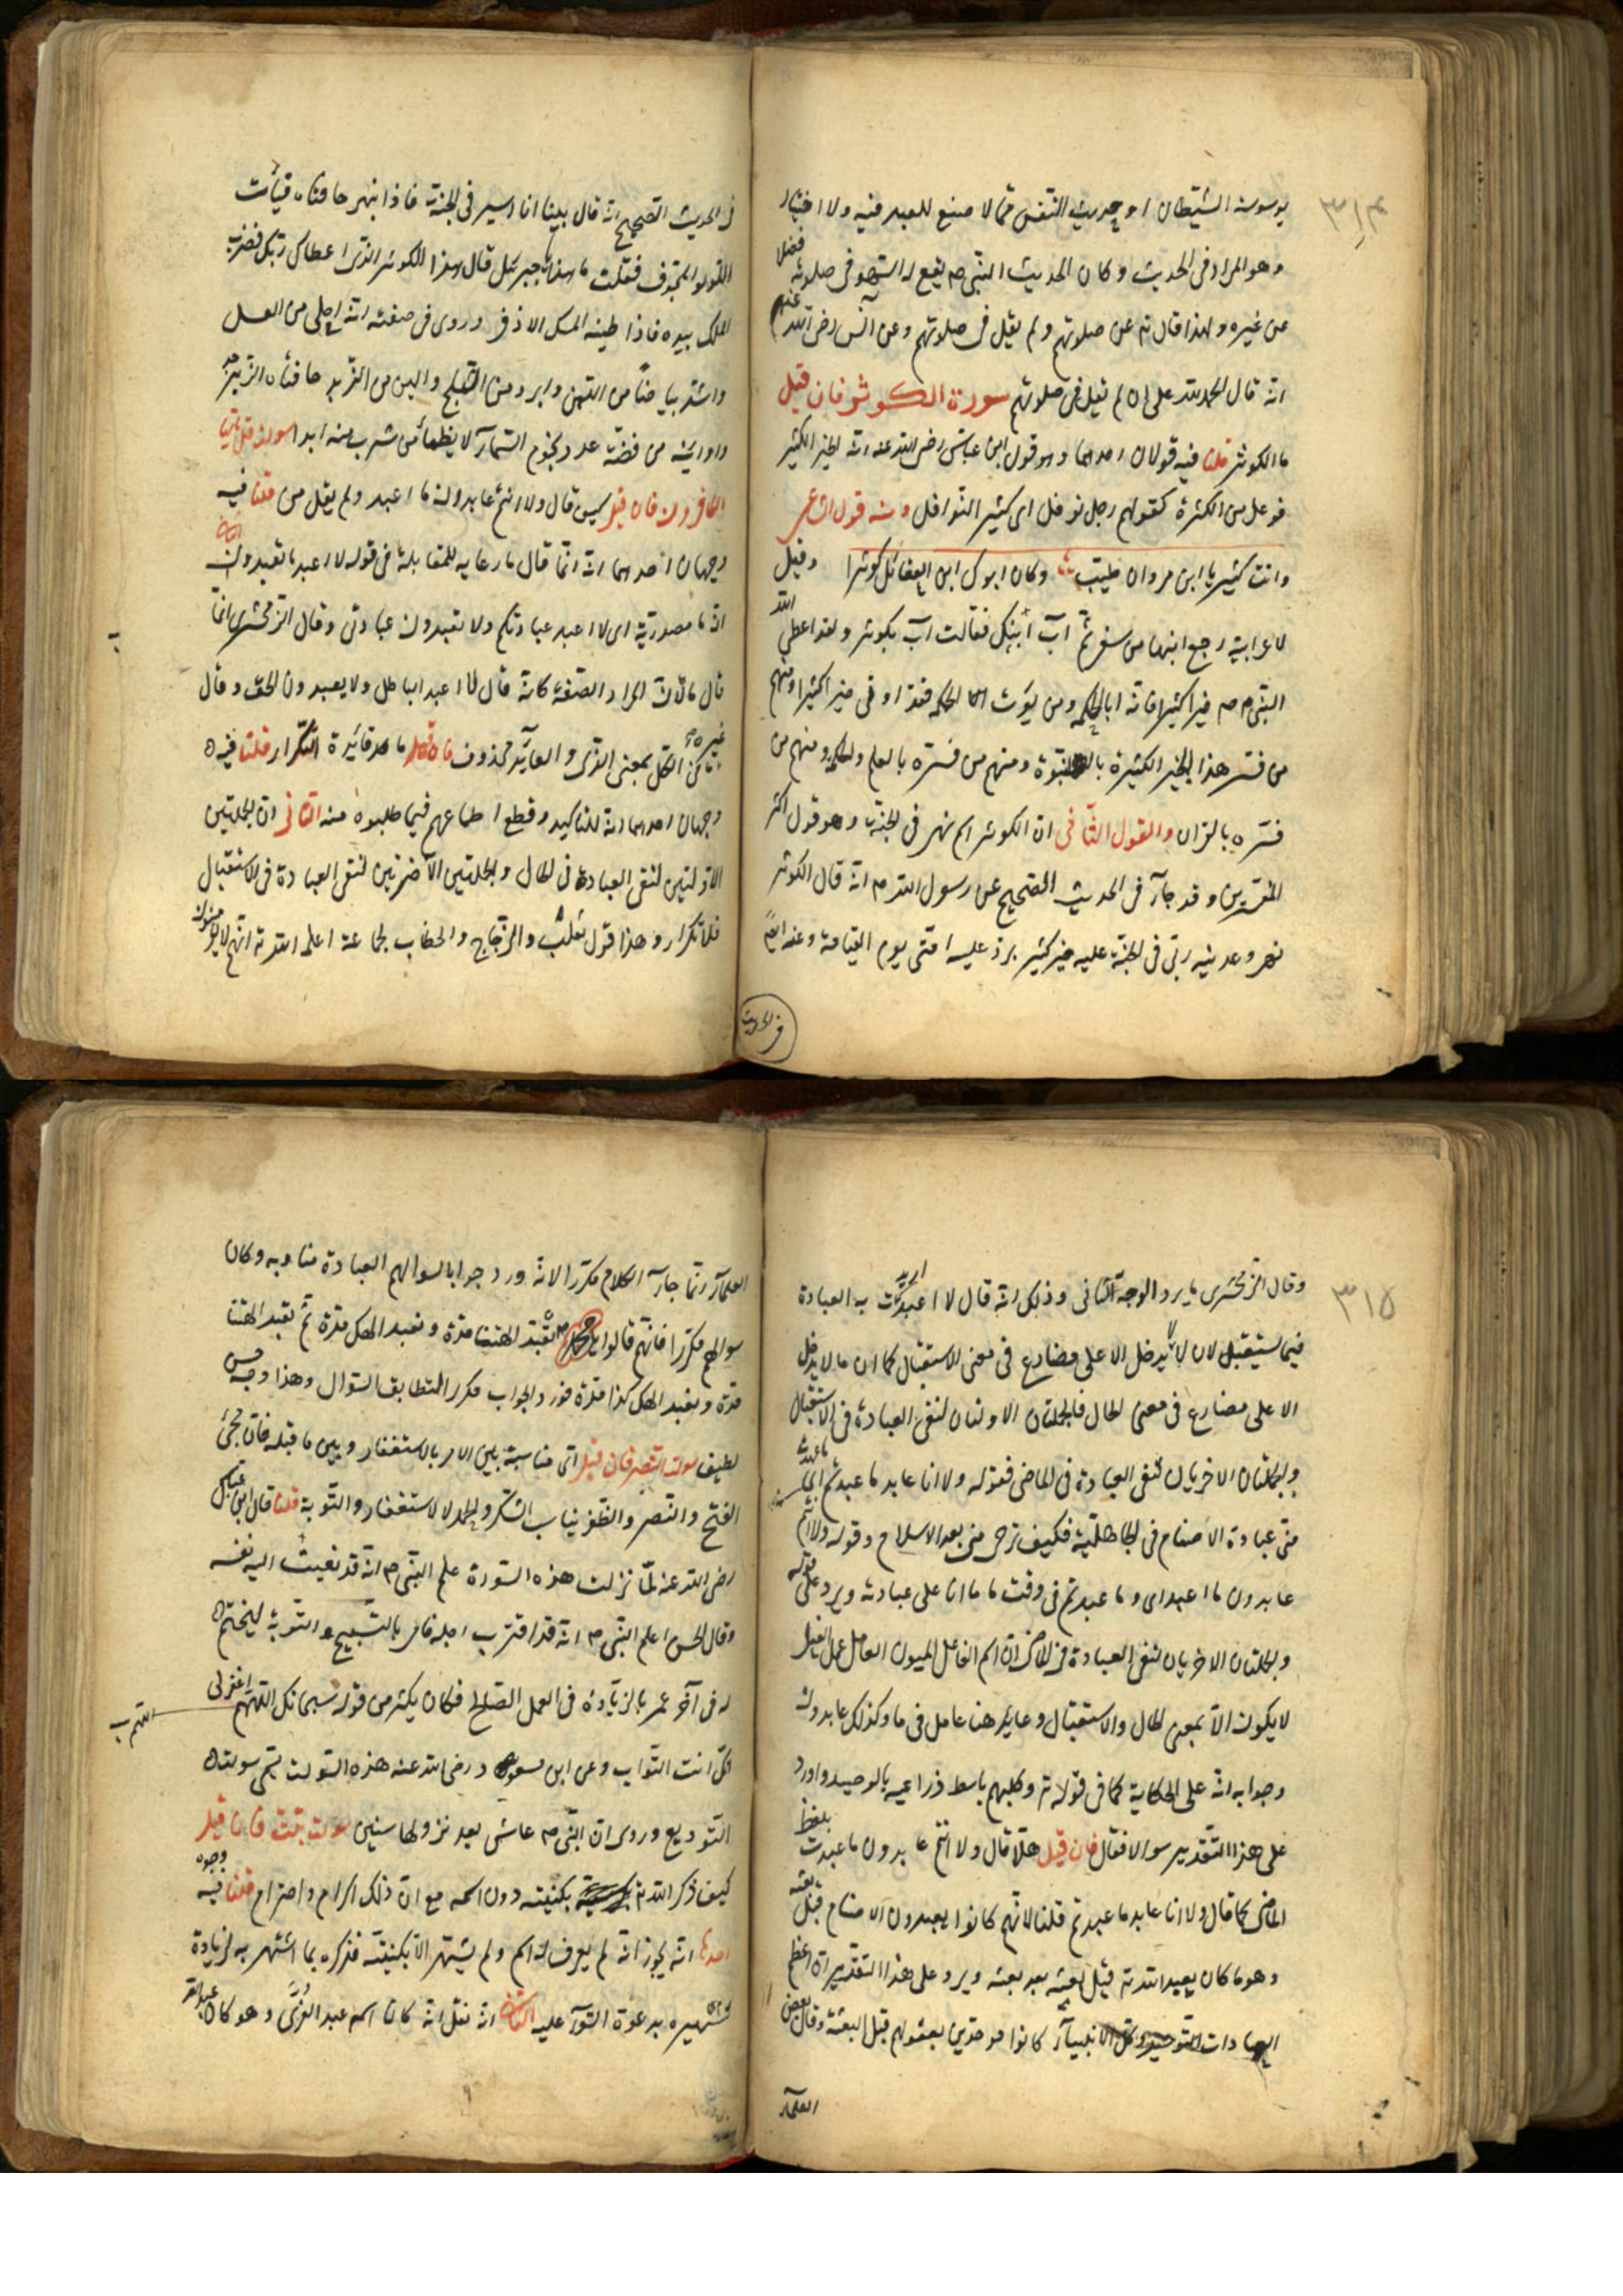 ٣١٤
بوسوسة الشيطان او حديث النفس مما لا صنع للعبد فيه ولا اختيار
وهو المراد فى الحديث وكان الحديث النبى م يقع له السهو فى صلوته فضلا
عن غيره ولهذا قال تع عن صلوتهم ولم يقل فى صلوتهم وعن انس رضى الله عنه
انه قال الحمد لله على ان لم يقل فى صلوتهم سورة الكوثر فان قيل
ما الكوثر قلنا فيه قولان احدهما وهو قول ابن عباس رضى الله عنه انه الخير الكثير
فوعل من الكثرة كقولهم رجل نوفل اى كثير النوافل ومنه قول الشاعر
وانت كثير يا ابن مروان طيب وكان ابوك ابن العقائل كوثرا وقيل
لاعرابية رجع ابنها من سفر بم آب ابنك فقالت آب بكوثر ولقد اعطى الله
النبى م خيرا كثيرا فانه اتاه الحكمة ومن يؤت الحكمة فقد اوتى خيرا كثيرا ومنهم
من فسر هذا الخير الكثيرة بالنبوة ومنهم من فسره بالعلم والحكمة ومنهم من
فسره بالقران والقول الثانى ان الكوثر اسم نهر فى الجنة وهو قول اكثر
المفسرين وقد جآء فى الحديث الصحيح عن رسول الله م انه قال الكوثر
نهر وعدنيه ربى فى الجنة عليه خير كثير يرد عليه امتى يوم القيامة وعنه ايضا
فى الحديث
فى الحديث الصحيح انه قال بينا انا اسير فى الجنة فاذا بنهر حافتاه قبأت
اللؤلؤ المجوف فقلت ما هذا يا جبرئيل قال هذا الكوثر الذى اعطاك ربك فضرب
الملك بيده فاذا طينه المسك الاذفر وروى فى صفته انه احلى من العسل
واشد بياضا من اللبن وابرد من الثلج والين من الزبد حافتاه الزبرجد
واوانيه من فضة عدد نجوم السمآء لا يظمأ من شرب منه ابدا سورة قل يا ايها
الكافرون فان قيل كيف قال ولا انتم عابدون ما اعبد ولم يقل من قلنا فيه
وجهان احدهما انه انما قال ما رعاية للمقابلة فى قوله لا اعبد ما تعبدون الثانى
ان ما مصدرية اى لا اعبد عبادتكم ولا تعبدون عبادتى وقال الزمخشرى انما
قال ما لان المراد الصفة كانه قال لا اعبد الباطل ولا يعبدون الحق وقال
غيره ما فى الكل بمعنى الذى والعآئد محذوف فان قيل ما فائدة التكرار قلنا فيه
وجهان احدهما انه للتاكيد وقطع اطماعهم فيما طلبوه منه الثانى ان الجملتين
الاولتين لنفى العبادة فى الحال والجملتين الآخرتين لنفى العبادة فى الاستقبال
فلا تكرار وهذا قول ثعلب والزجاج والخطاب لجماعة اعلم الله تع انهم لا يؤمنون
٣١٥
وقال الزمخشرى ما يرد الوجه الثانى وذلك انه قال لا اعبد اريدت به العبادة
فيما يستقبل لان لا لا يدخل الا على مضارع فى معنى الاستقبال كما ان ما لا يدخل
الا على مضارع فى معنى الحال فالجملتان الاولتان لنفى العبادة فى الاستقبال
والجملتان الاخريان لنفى العبادة فى الماضى فقوله ولا انا عابد ما عبدتم اى ما عهدت
منى عبادة الاصنام فى الجاهلية فكيف ترجى منى بعد الاسلام وقوله ولا انتم
عابدون ما اعبد اى وما عبدتم فى وقت ما ما انا على عبادته ويرد على قوله
والجملتان الاخريان لنفى العبادة فى الماضى ان اسم الفاعل المنون العامل عمل الفعل
لا يكون الا بمعنى الحال والاستقبال وعابد هنا عامل فى ما وكذلك عابدون
وجوابه انه على الحكاية كما فى قوله تع وكلبهم باسط ذراعيه بالوصيد واورد
على هذا التقدير سوالا فقال فان قيل هلا قال ولا انتم عابدون ما عبدت بلفظ
الماضى كما قال ولا انا عابد ما عبدتم قلنا لانهم كانوا يعبدون الاصنام قبل بعثه
وهو ما كان يعبد الله تع قبل بعثه بعد بعثه ويرد على هذا التقدير ان اعظم
العبادات التوحيد وكل الانبيآء كانوا موحدين بعقولهم قبل البعثة وقال بعض
العلمآء
العلمآء انما جآء الكلام مكررا لانه ورد جوابا لسوالهم العبادة مناوبة وكان
سوالهم مكررا فانهم قالوا يا محمد م تعبد الهتنا مدة ونعبد الهك مدة ثم تعبد الهتنا
مدة ونعبد الهك كذا مدة فورد الجواب مكررا لتطابق السؤال وهذا وجه حسن
لطيف سورة النصر فان قيل اى مناسبة بين الامر بالاستغفار وبين ما قبله فان مجئ
الفتح والنصر والظفر يناسب الشكر والحمد لا الاستغفار والتوبة قلنا قال ابن عباس
رضى الله عنه لما نزلت هذه السورة علم النبى م انه قد نعيت اليه نفسه
وقال الحسن اعلم النبى م انه قد اقترب اجله فامر بالتسبيح والتوبة ليختم
له فى آخر عمر بالزيادة فى العمل الصالح فكان يكثر من قوله سبحانك اللهم اغفر لى
انك انت التواب وعن ابن مسعود رضى الله عنه هذه السورة تسمى سورة
التوديع وروى ان النبى م عاش بعد نزولها سنين سورة تبت فان قيل
كيف ذكر الله تع بكنيته دون اسمه مع ان ذلك اكرام واحترام قلنا فيه وجوه
احدها انه يجوز انه لم يعرف له اسم ولم يشتهر الا بكنيته فذكره بما اشتهر به لزيادة
تشهيره بدعوة السوء عليه الثانى انه نقل انه كان اسمه عبد العزى وهو كان عبد الله